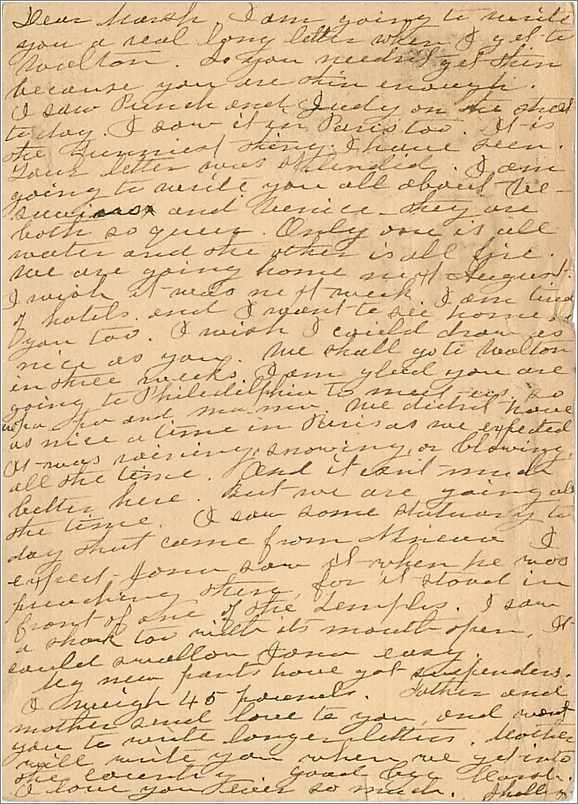 Dear Marsh, I am going to write
you a real long letter when I get to
Walton. So you needn't get thin
because you are thin enough.
I saw Punch and Judy on the street
today. I saw it in Paris too. It is
the Funniest thing I have seen.
Your letter was splendid. I am
going to write you all about Ve-
suvious and Venice - they are
both so queer. Only one is all
water and the other is all fire.
We are going home next August.
I wish it was next week I am tired
of hotels. and I want to see home &
you too. I wish I could draw as
nice as you. We shall go to Walton
in three weeks. I am glad you are
going to Philedilphia to meet us, so
 and ma ma. We didn't have
as nice a time in Paris as we expeted
it was raining, snowing, or blowing,
all the time. And it isnt much
better here. But we are going all
the time. I saw some statuary to
day that came from Ninevea I
expect Jona saw it when he was
preaching there, for it stood in
front of one of the temples. I saw
a shark too with its mouth open, It
could swallow Jona easy.
My new pants have got suspenders.
I weigh 45 pounds. Father and
mother send love to you, and want
you to write longer letters. Mother
will write you when we get into
the country good bye Marsh.
I love you ever so much.